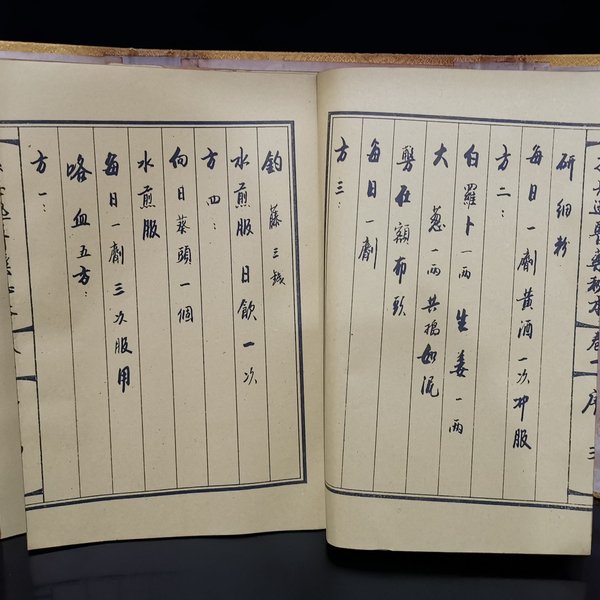 研細粉
每日一劑黃酒一次冲服
方二：
白羅卜一兩 生姜一兩
大葱一兩 共搗如泥
在額布
每日一劑
方三：
釣藤三錢
水煎服日飲一次
方四：
向日葵頭一個
水煎服
每日一劑三次服用
咯血五方：
方一：